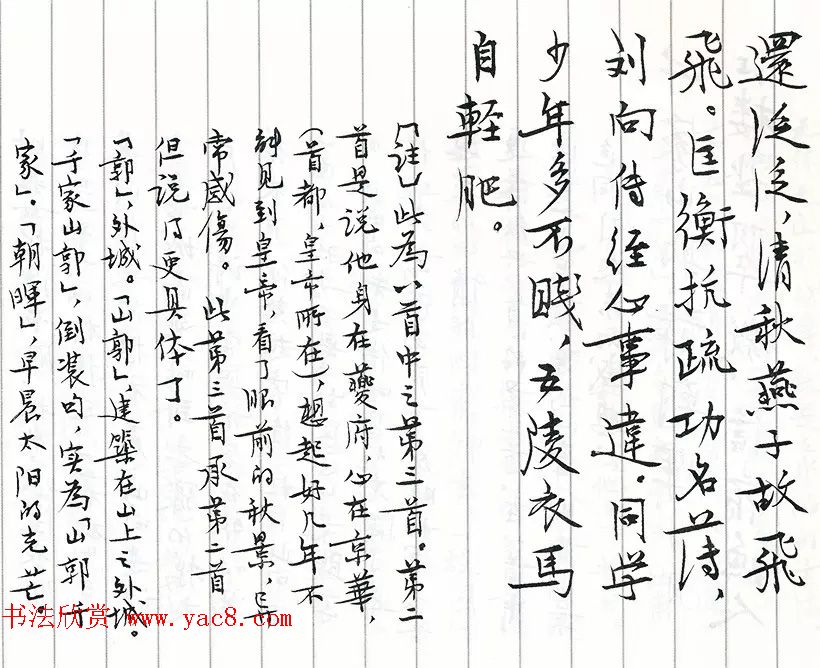 還泛泛，清秋燕子故飛
飛。匡衡抗疏功名薄，
刘向传经心事違。同学
少年多不賤，五陵衣馬
自軽肥。
「註」此為八首中之第三首。第二
首是说他身在夔府，心在京華，
（首都，皇帝所在），想起好几年不
能见到皇帝，看了眼前的秋景，异
常感傷。此第三首承第二首
但说得更具体了。
「郭」，外城。「山郭」，建築在山上之外城。
「千家山郭」，倒装句，实為「山郭千
家」。「朝暉」，早晨太阳的光芒。
书法欣赏 www.yac8.com